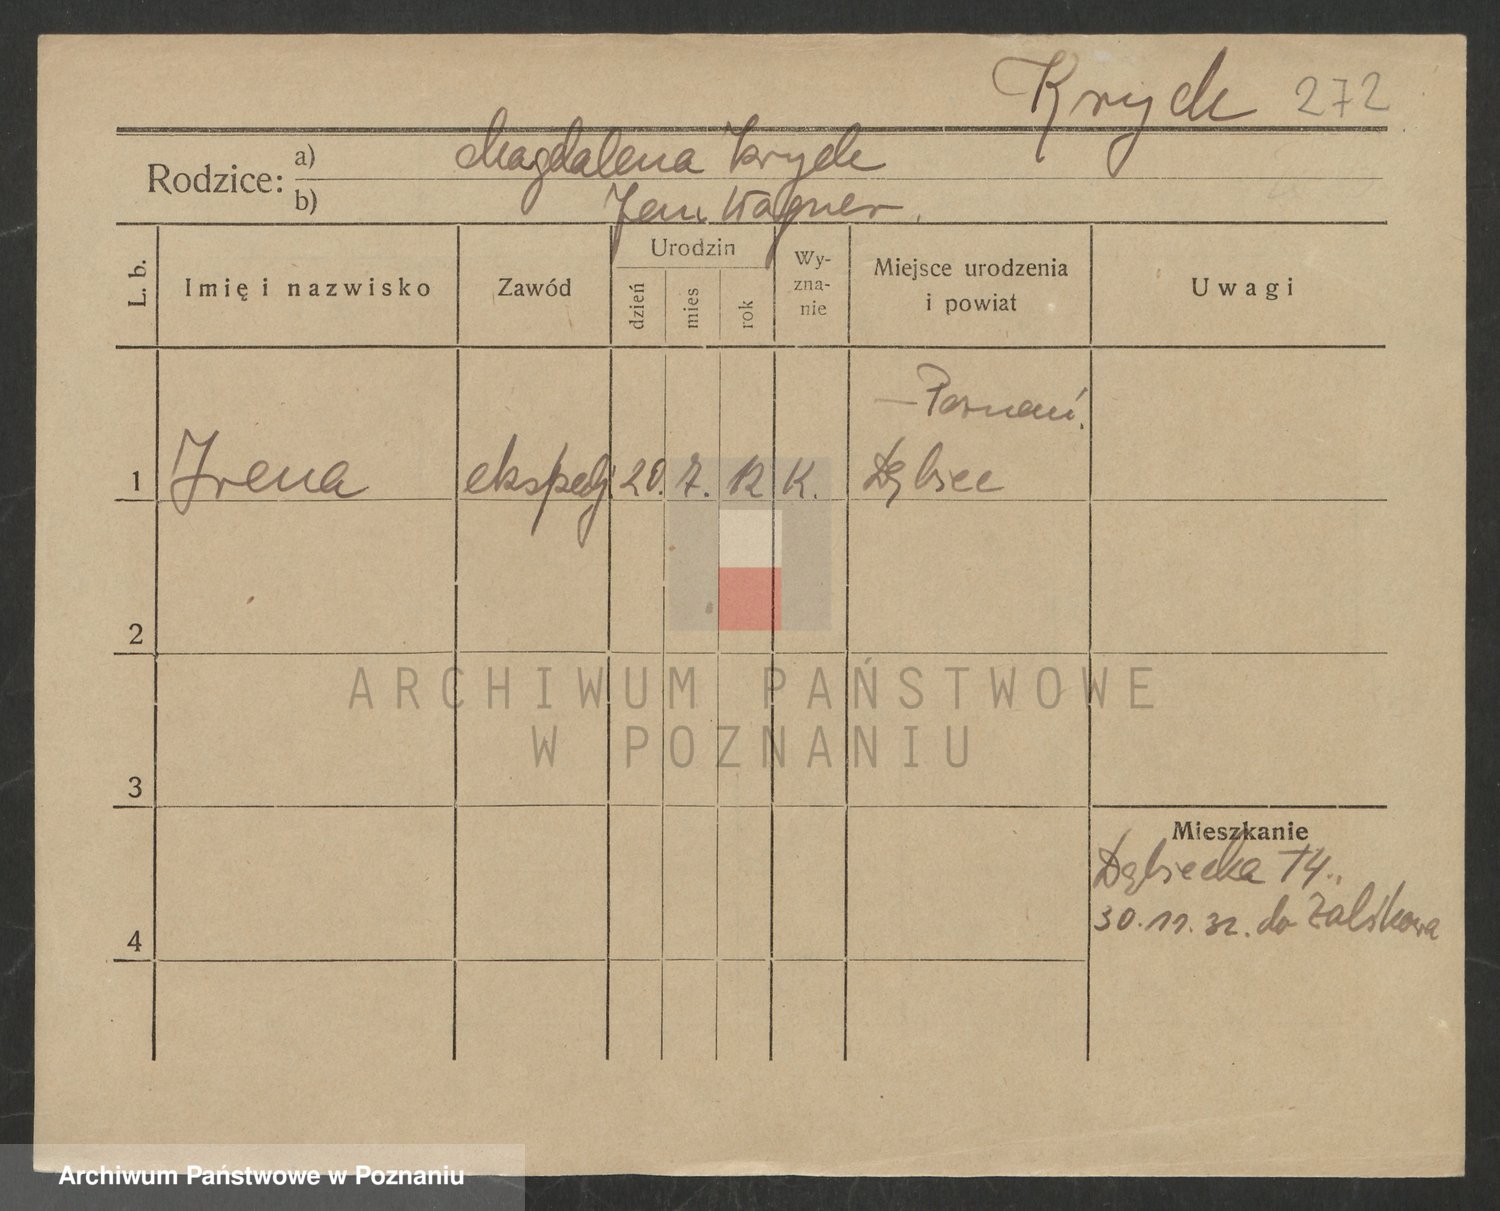 Krych 272
Rodzice: a) Magdalena Krych
b) Jan Wagner.
L. b. Imię i nazwisko Zawód Urodzin dzień mies rok Wy-zna-nie Miejsce urodzenia i powiat Uwagi
— Poznań.
1 Irena eksped. 20. 7. 12 K. Dębiec
2
ARCHIWUM PAŃSTWOWE
W POZNANIU
3
Mieszkanie
Dębiecka 14.
30.11.32. do
4
Archiwum Państwowe w Poznaniu